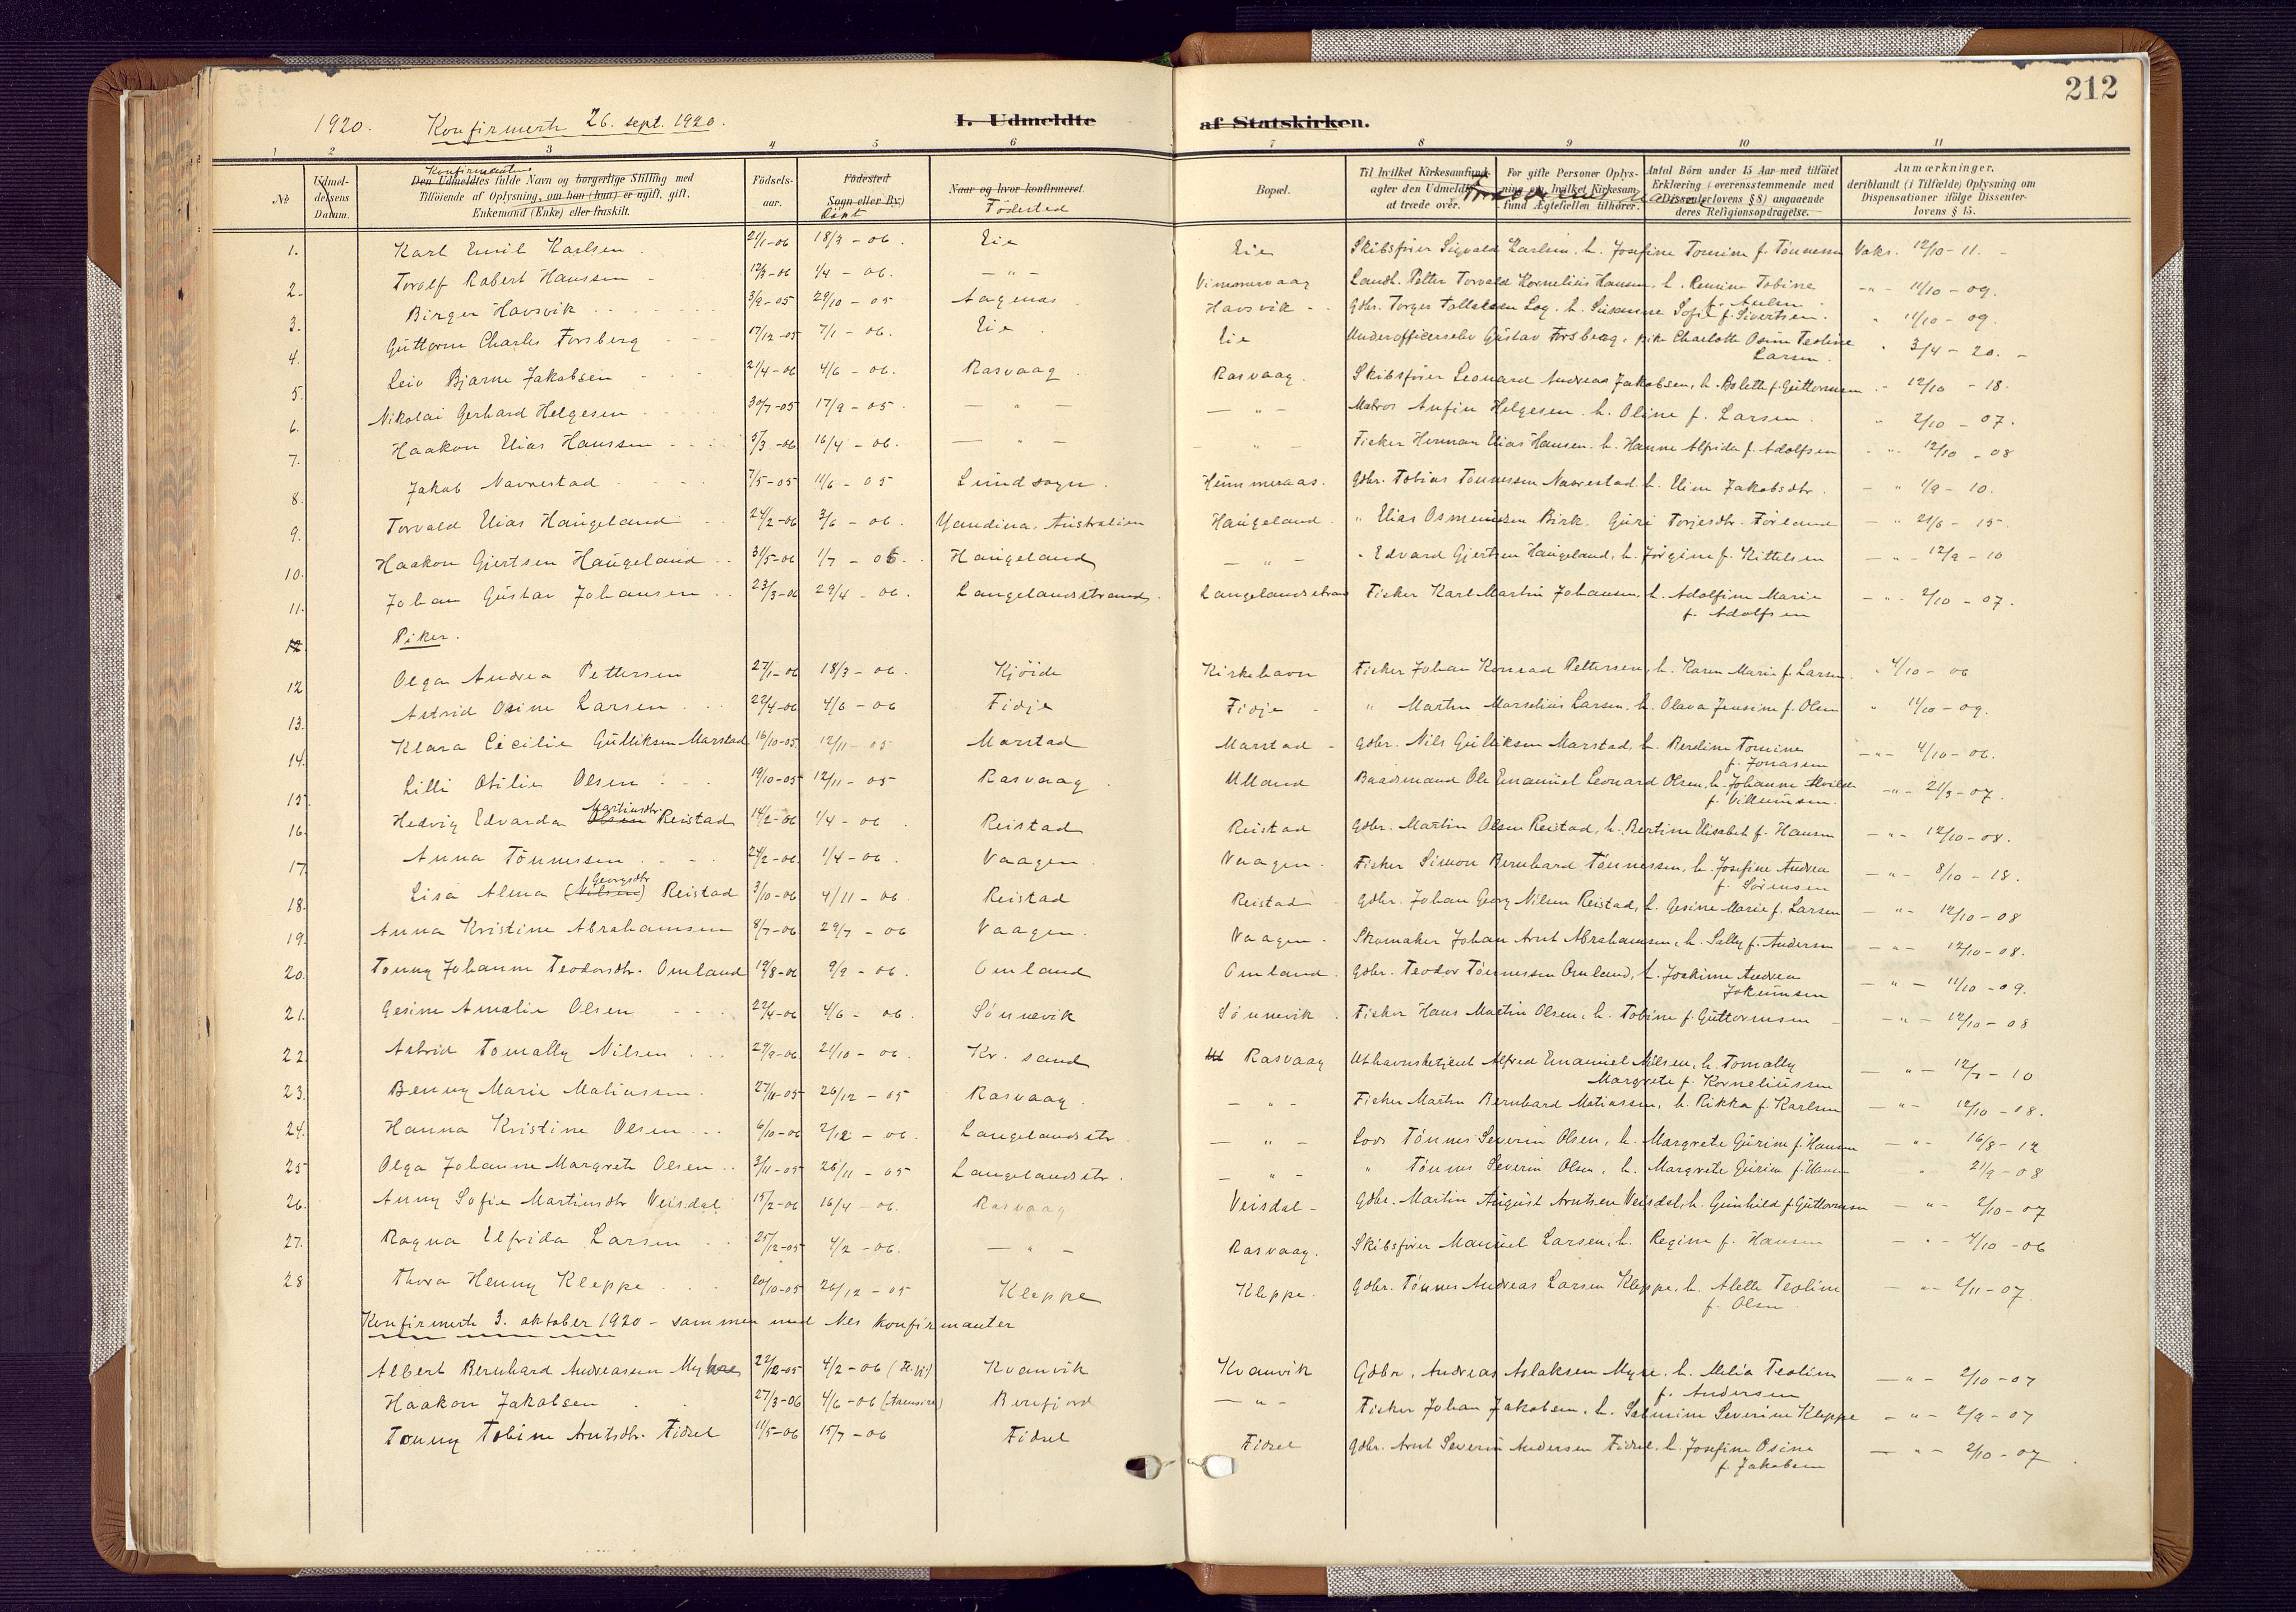 212
1920. Konfirmerte 26. sept. 1920. I. Udmeldte af Statskirken.
1 2 3 4 5 6 7 8 9 10 11
No Udmeldelsens Datum. Konfirmantens Den Udmeldtes fulde Navn og borgerlige Stilling med Tilføiende af Oplysning, om han (hun) er ugift, gift, Enkemand (Enke) eller fraskilt. Fødsels-aar. Fødested Sogn eller By) Døpt Naar og hvor konfirmeret. Fødested Bopæl. Til hvilket Kirkesamfund agter den Udmeldte at træde over. For gifte Personer Oplysning om hvilket Kirkesamfund Ægtefællen tilhører. Antal Börn under 15 Aar med tilføiet Erklæring (overensstemmende med Dissenterlovens § 8) angaaende deres Religionsopdragelse. Anmærkninger, deriblandt (i Tilfælde) Oplysning om Dispensationer ifølge Dissenterlovens § 15.
1. Karl Emil Karlsen 21/1-06 18/3-06. Eie Eie Skibsfører Sigvald Karlsen, h. Josefine Tomine f. Tønnesen Vaks. 12/10-11.
2. Torolf Robert Hanssen 12/3-06 1/4-06. — " — Vimmervaag Landh. Petter Torvald Kornelius Hansen, h. Remine Tobine -"- 11/10-09.
3. Birger Havsvik 3/9-05 29/10-05 Aagenes Havsvik Gdbr. Torger Tallaksen Log, h. Susanne Sofie f. Sivertsen. " 11/10-09.
4. Guttorm Charles Forsberg 17/12-05 7/1-06. Eie Eie Underofficerselev Gustav Forsberg, pike Charlotte Osine Teoline Larsen. " 3/4-20.
5. Leiv Bjarne Jakobsen 21/4-06 4/6-06. Rasvaag Rasvaag. Skibsfører Leonard Andreas Jakobsen, h. Bolette f. Guttormsen - 12/10-18.
6. Nikolai Gerhard Helgesen 30/7-05 17/9-05. — " — — " — Matros Anfin Helgesen, h. Oline f. Larsen. " 2/10-07.
7. Haakon Elias Hanssen 5/3-06 16/4-06. — " — — " — Fisker Herman Elias Hansen, h. Hanne Alfrida f. Adolfsen -"- 12/10-08
8. Jakob Navrestad 7/5-05 11/6-05 Lund sogn. Hummeraas. Gdbr. Tobias Tønnessen Navrestad h. Eline Jakobsdtr. — " 1/9-10.
9. Torvald Elias Haugeland 24/2-06 3/6-06. Yandina, Australien Haugeland. " Elias Osmundsen Birk, Guri Torjesdtr. Førland — " 21/6-15.
10. Haakon Gjertsen Haugeland 31/5-06 1/7-06. Haugeland — " — " Edvard Gjertsen Haugeland, h. Jørgine f. Kittelsen — " - 12/9-10
11. Johan Gustav Johansen 23/3-06 29/4-06. Langelandsstrand. Langelandsstrand Fisker Karl Martin Johansen, h. Adolfine Marie f. Adolfsen — " - 2/10-07.
12 Piker.
12 Olga Andrea Pettersen 27/1-06 18/3-06. Kjöide Kirkehavn Fisker Johan Konrad Pettersen, h. Karen Marie f. Larsen. " 4/10-06
13. Astrid Osine Larsen 22/4-06 4/6-06 Fidje Fidje " Martin Marselius Larsen, h. Olava Jensine f. Olsen " 11/10-09.
14. Klara Cecilie Gulliksen Marstad 16/10-05 12/11-05 Marstad Marstad Gdbr. Nils Gulliksen Marstad, h. Beroline Tomine f. Jonassen -"- 4/10-06.
15. Lilli Otilie Olsen 19/10-05 12/11-05 Rasvaag Ulland Baadsmand Ole Emanuel Leonard Olsen, h. Johanne Alvilde f. Villumsen. -"- 21/3-07.
16. Hedvig Edvarda Olsen Martinsdtr. Reistad 14/2-06 1/4-06 Reistad Reistad Gdbr. Martin Olsen Reistad, h. Bertine Elisabet f. Hansen -"- 12/10-08.
17. Anna Tønnessen 24/2-06. 1/4-06. Vaagen Vaagen. Fisker Simon Bernhard Tønnessen, h. Josefine Andrea f. Sørensen -"- 8/10-18.
18. Lisa Alma (Nilsen) Georgsdtr Reistad 3/10-06 4/11-06 Reistad Reistad Gdbr. Johan Georg Nilsen Reistad, h. Gesine Marie f. Larsen -"- 12/10-08
19. Anna Kristine Abrahamsen 8/7-06 29/7-06 Vaagen. Vaagen. Skomaker Johan Arnt Abrahamsen, h. Sally f. Andersen -"- 12/10-08.
20. Tonny Johanne Teodorsdtr. Omland 19/8-06 9/9-06. Omland Omland. Gdbr. Teodor Tønnessen Omland, h. Joakime Andrea Jokumsen — " — 11/10-09.
21. Gesine Amalie Olsen 22/4-06 4/6-06. Sönnevik Sönnevik. Fisker Hans Martin Olsen, h. Tobine f. Guttormsen — " - 12/10-08
22. Astrid Tomally Nilsen 29/9-06 21/10-06. Kr. sand Rasvaag Uthavnsbetjent Alfred Emanuel Nilsen, h. Tomally Margrete f. Korneliussen — " - 12/7-10
23. Benny Marie Matiassen. 27/11-05 26/12-05 Rasvaag. — " — Fisker Martin Bernhard Matiassen, h. Rikka f. Karlsen — " - 12/10-08.
24. Hanna Kristine Olsen 6/10-06 2/12-06. Langelandsstr. — " — Lods Tønnes Severin Olsen, h. Margrete Gurine f. Hansen — " - 16/8-12
25 Olga Johanne Margrete Olsen 3/11-05 26/11-05 Langelandsstr. — " — " Tønnes Severin Olsen, h. Margrete Gurine f. Hansen " 21/9-08
26. Anny Sofie Martinsdtr Veisdal 15/2-06 16/4-06. Rasvaag Veisdal Gdbr. Martin August Arntsen Veisdal, h. Gunhild f. Guttormsen — " - 2/10-07
27. Ragna Elfrida Larsen 25/12-05 4/2-06. — " — Rasvaag. Skibsfører Manuel Larsen, h. Regine f. Hansen — " - 4/10-06
28 Thora Henny Kleppe 20/10-05 26/12-05 Kleppe Kleppe. Gdbr. Tønnes Andreas Larsen Kleppe, h. Alette Teoline f. Olsen — " - 2/11-07
Konfirmerte 3. oktober 1920 - sammen med Nes konfirmanter
Albert Bernhard Andreassen Myhre 22/12-05 4/2-06 Kvanvik Kvanvik Gdbr. Andreas Aslaksen Myre, h. Melia Teoline f. Andersen — " - 2/10-07
Haakon Jakobsen 27/3-06 4/6-06 Berefjord — " — Fisker Johan Jakobsen, h. Salmine Severine Kleppe — " — 2/9-07
Tonny Tobine Arntsdtr. Fidsel 11/5-06 15/7-06 Fidsel Fidsel Gdbr. Arnt Severin Andersen Fidsel, h. Josefine Osine f. Jakobsen — " - 2/10-07